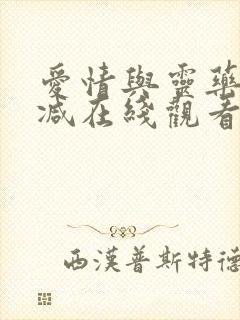 愛情與靈藥
减在綫觀看
西漢普斯特德